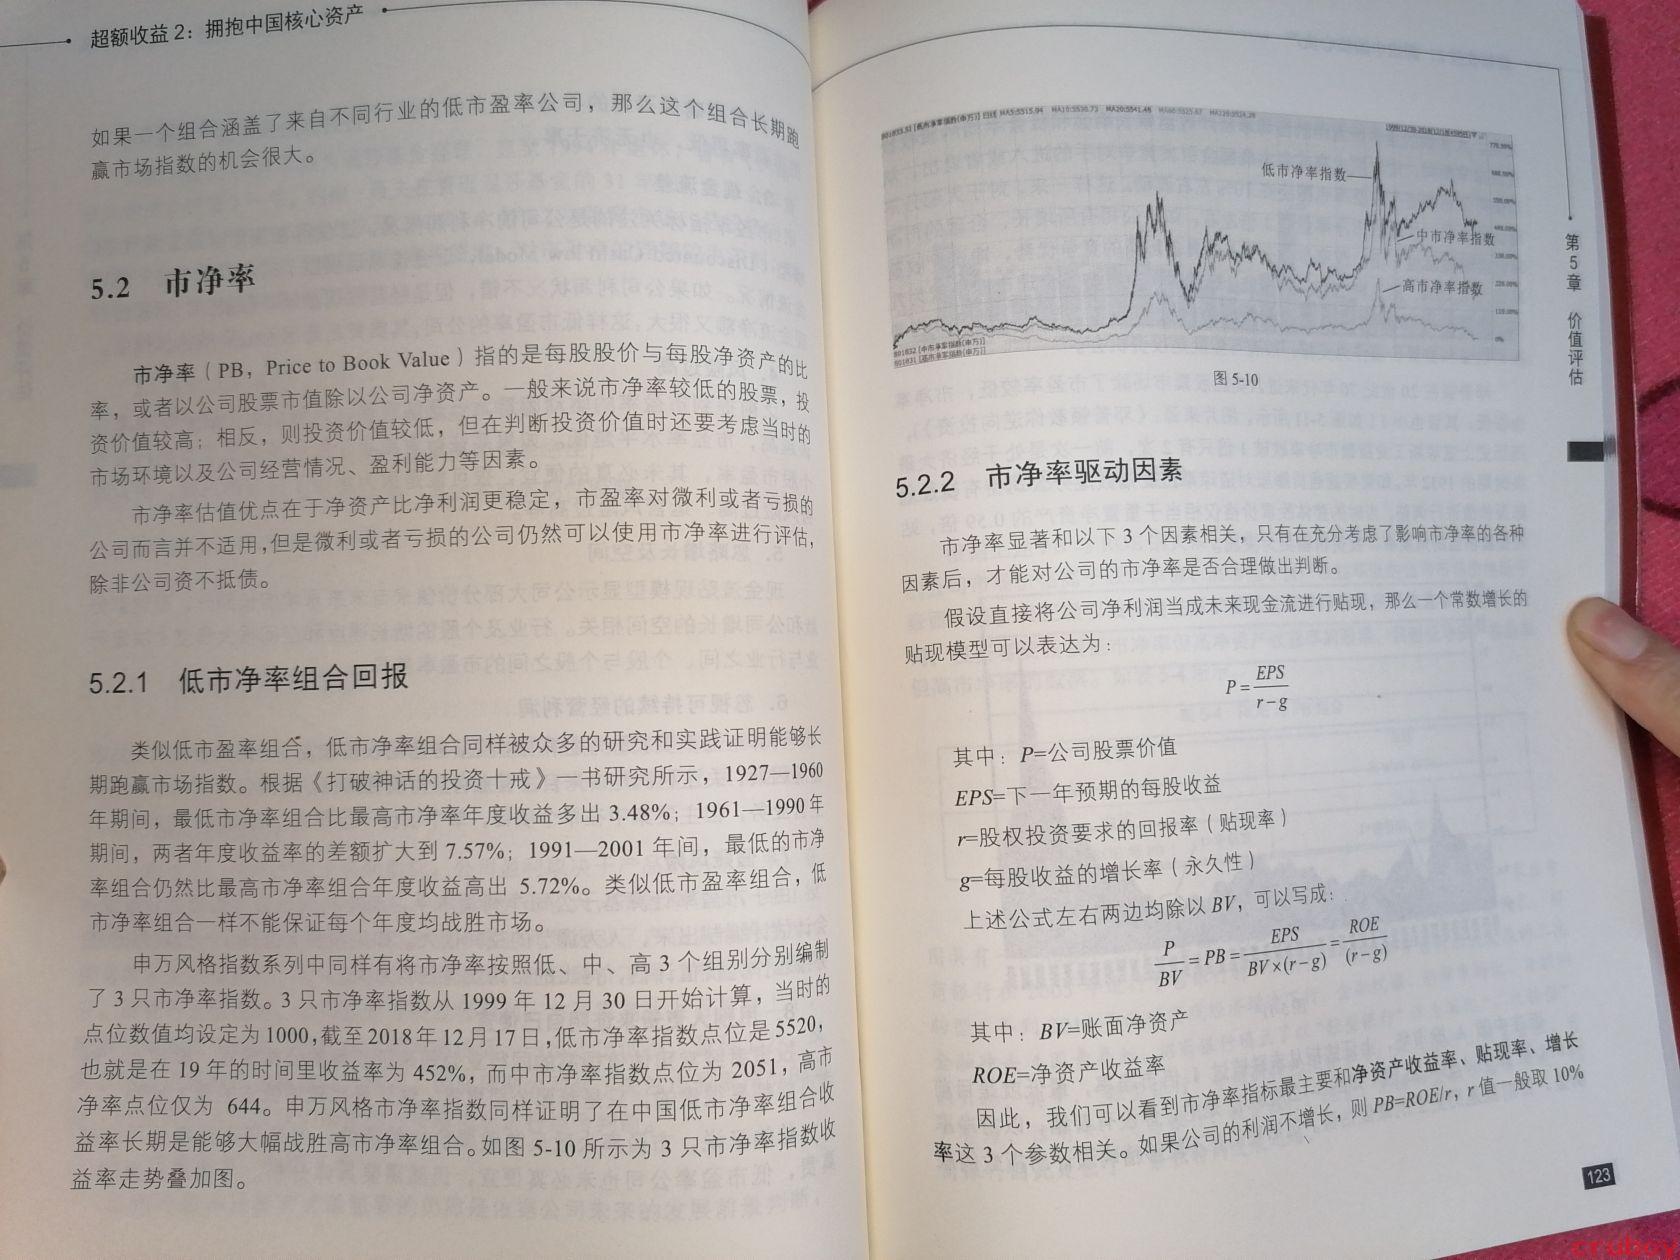 超额收益2：拥抱中国核心资产
如果一个组合涵盖了来自不同行业的低市盈率公司，那么这个组合长期跑
赢市场指数的机会很大。
5.2 市净率
市净率（PB，Price to Book Value）指的是每股股价与每股净资产的比
率，或者以公司股票市值除以公司净资产。一般来说市净率较低的股票，投
资价值较高；相反，则投资价值较低，但在判断投资价值时还要考虑当时的
市场环境以及公司经营情况、盈利能力等因素。
市净率估值优点在于净资产比净利润更稳定，市盈率对微利或者亏损的
公司而言并不适用，但是微利或者亏损的公司仍然可以使用市净率进行评估，
除非公司资不抵债。
5.2.1 低市净率组合回报
类似低市盈率组合，低市净率组合同样被众多的研究和实践证明能够长
期跑赢市场指数。根据《打破神话的投资十戒》一书研究所示，1927—1960
年期间，最低市净率组合比最高市净率年度收益多出 3.48%；1961—1990 年
期间，两者年度收益率的差额扩大到 7.57%；1991—2001 年间，最低的市净
率组合仍然比最高市净率组合年度收益高出 5.72%。类似低市盈率组合，低
市净率组合一样不能保证每个年度均战胜市场。
申万风格指数系列中同样有将市净率按照低、中、高 3 个组别分别编制
了 3 只市净率指数。3 只市净率指数从 1999 年 12 月 30 日开始计算，当时的
点位数值均设定为1000，截至2018年12月17日，低市净率指数点位是5520，
也就是在 19 年的时间里收益率为 452%，而中市净率指数点位为 2051，高市
净率点位仅为 644。申万风格市净率指数同样证明了在中国低市净率组合收
益率长期是能够大幅战胜高市净率组合。如图 5-10 所示为 3 只市净率指数收
益率走势叠加图。
低市净率指数
中市净率指数
高市净率指数
801832 [中市净率指数(申万)]
801831 [高市净率指数(申万)]
图 5-10
第5章 价值评估
5.2.2 市净率驱动因素
市净率显著和以下 3 个因素相关，只有在充分考虑了影响市净率的各种
因素后，才能对公司的市净率是否合理做出判断。
假设直接将公司净利润当成未来现金流进行贴现，那么一个常数增长的
贴现模型可以表达为：
P=EPS/(r-g)
其中：P=公司股票价值
EPS=下一年预期的每股收益
r=股权投资要求的回报率（贴现率）
g=每股收益的增长率（永久性）
上述公式左右两边均除以 BV，可以写成：
P/BV=PB=EPS/(BV×(r-g))=ROE/(r-g)
其中：BV=账面净资产
ROE=净资产收益率
因此，我们可以看到市净率指标最主要和净资产收益率、贴现率、增长
率这 3 个参数相关。如果公司的利润不增长，则 PB=ROE/r，r 值一般取 10%
123